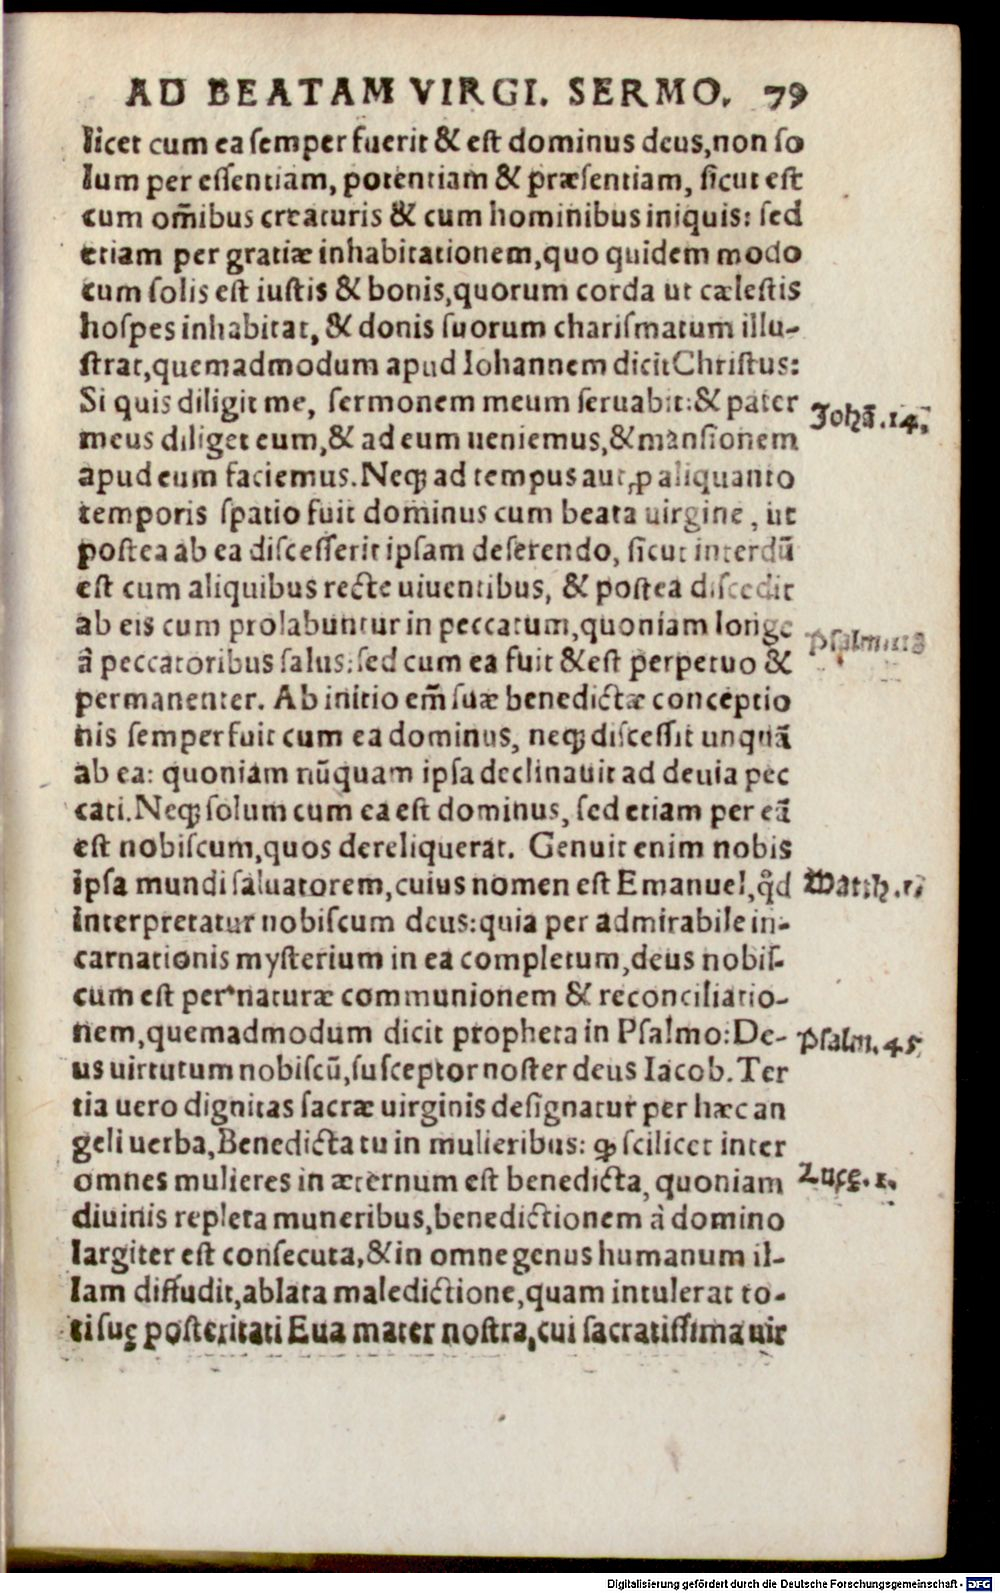 AD BEATAM VIRGI. SERMO. 79
licet cum ea semper fuerit & est dominus deus, non so
lum per essentiam, potentiam & præsentiam, sicut est
cum om̃ibus creaturis & cum hominibus iniquis: sed
etiam per gratiæ inhabitationem, quo quidem modo
cum solis est iustis & bonis, quorum corda ut cælestis
hospes inhabitat, & donis suorum charismatum illu-
strat, quemadmodum apud Iohannem dicit Christus:
Si quis diligit me, sermonem meum seruabit: & pater
Johã. 14.
meus diliget eum, & ad eum ueniemus, & mansionem
apud eum faciemus. Neqꝫ ad tempus aut ꝓ aliquanto
temporis spatio fuit dominus cum beata uirgine, ut
postea ab ea discesserit ipsam deserendo, sicut interdũ
est cum aliquibus recte uiuentibus, & postea discedit
ab eis cum prolabuntur in peccatum, quoniam longe
Psalm. 118
â peccatoribus salus: sed cum ea fuit & est perpetuo &
permanenter. Ab initio em̃ suæ benedictæ conceptio
nis semper fuit cum ea dominus, neqꝫ discessit unquã
ab ea: quoniam nũquam ipsa declinauit ad deuia pec
cati. Neqꝫ solum cum ea est dominus, sed etiam per eã
est nobiscum, quos dereliquerat. Genuit enim nobis
ipsa mundi saluatorem, cuius nomen est Emanuel, qd̉
Matth. 1.
interpretatur nobiscum deus: quia per admirabile in-
carnationis mysterium in ea completum, deus nobis-
cum est per naturæ communionem & reconciliatio-
nem, quemadmodum dicit propheta in Psalmo: De-
Psalm. 45
us uirtutum nobiscũ, susceptor noster deus Iacob. Ter
tia uero dignitas sacræ uirginis designatur per hæc an
geli uerba, Benedicta tu in mulieribus: ꝙ scilicet inter
omnes mulieres in æternum est benedicta, quoniam
Lucę. 1.
diuinis repleta muneribus, benedictionem à domino
largiter est consecuta, & in omne genus humanum il-
lam diffudit, ablata maledictione, quam intulerat to-
ti suę posteritati Eua mater nostra, cui sacratissima uir
Digitalisierung gefördert durch die Deutsche Forschungsgemeinschaft - DFG